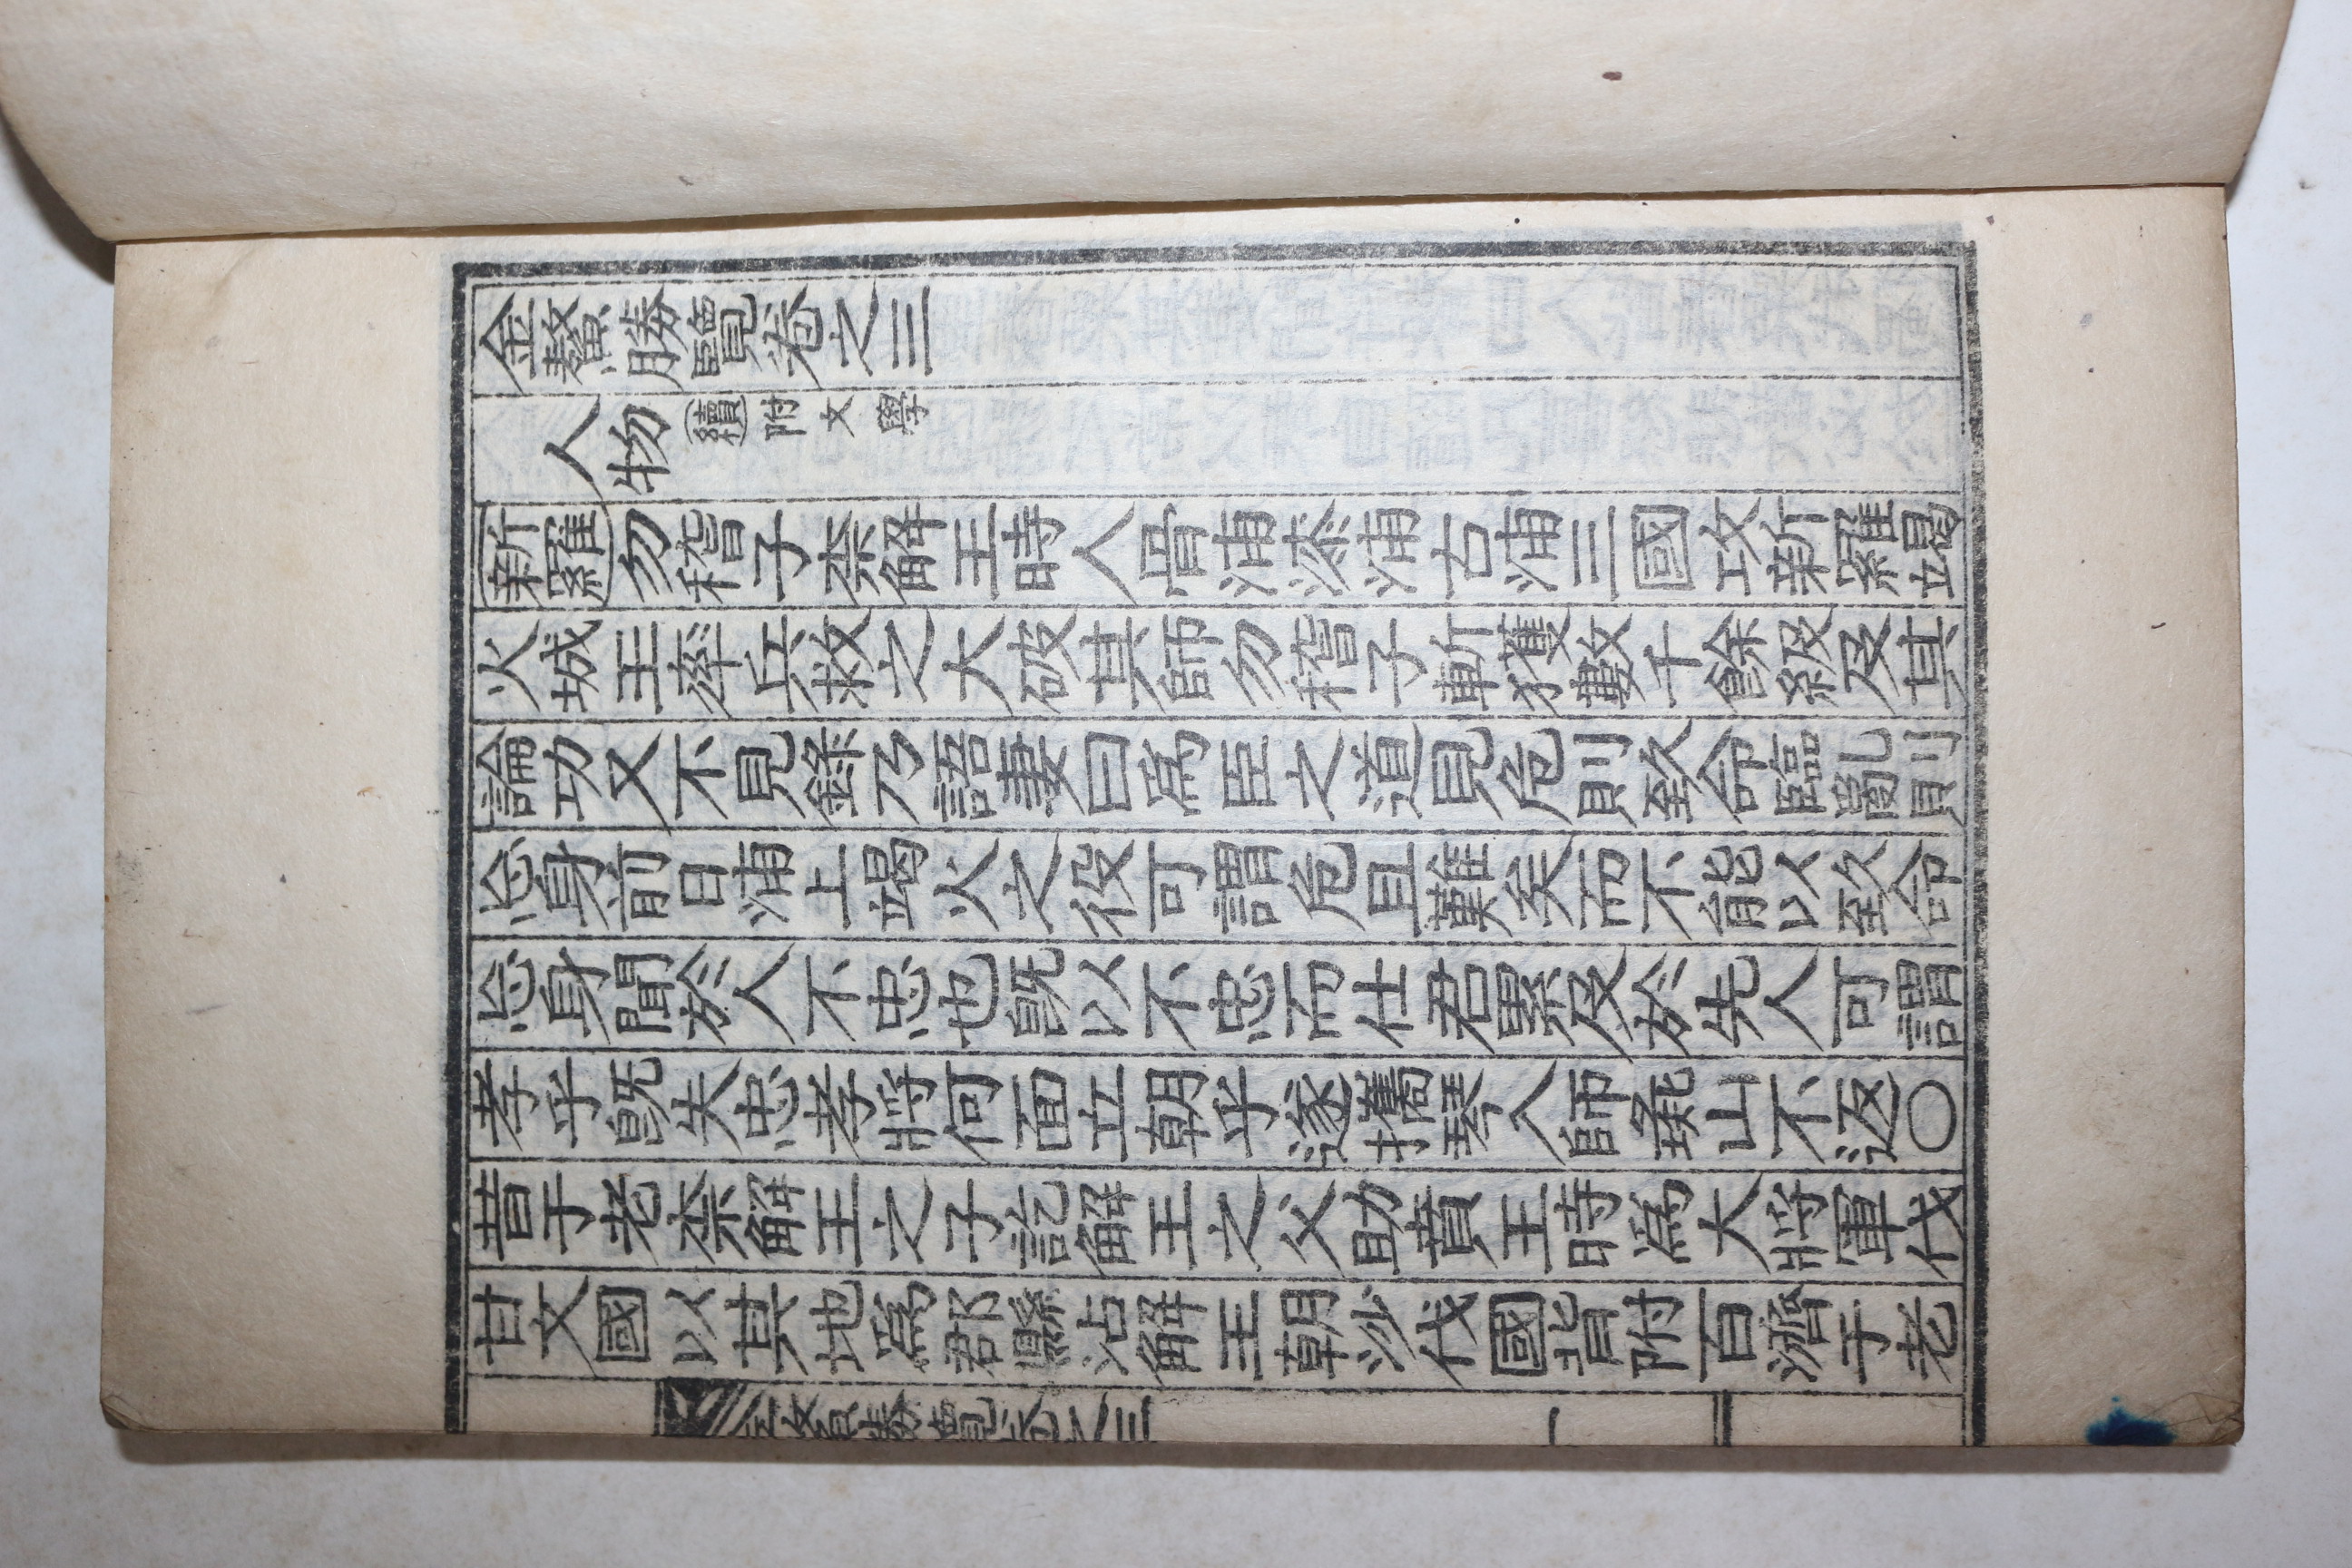 金鰲勝覽卷之三
人物 續附文學
新羅勿稽子柰解王時人骨浦漆浦古浦三國攻新羅竭
火城王率兵救之大破其師勿稽子斬獲數十餘級及其
論功又不見錄乃語妻曰爲臣之道見危則致命臨亂則
忘身前日浦上竭火之役可謂危且難矣而不能以致命
忘身聞於人不忠也旣以不忠而仕君累及於先人可謂
孝乎旣失忠孝將何面立朝乎遂携琴入師彘山不返○
昔于老柰解王之子訖解王之父助賁王時爲大將軍伐
甘文國以其地爲郡縣沾解王朝沙伐國背附百濟于老
金鰲勝覽卷之三 一